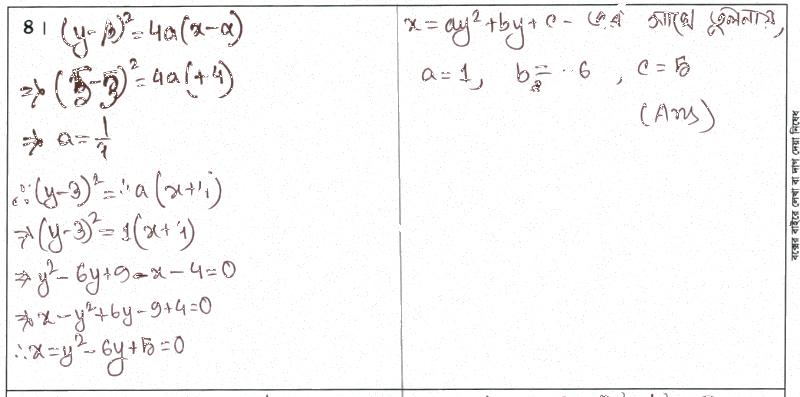 8। (y-β)² = 4a(x-α)
⇒ (5-3)² = 4a(+4)
⇒ a = 1/4
∴ (y-3)² = 4a(x+4)
⇒ (y-3)² = 1(x+4)
⇒ y² - 6y + 9 - x - 4 = 0
⇒ x - y² + 6y - 9 + 4 = 0
∴ x = y² - 6y + 5 = 0
x = ay² + by + c - এর সাথে তুলনায়,
a = 1, b = -6, c = 5
(Ans)
বক্সের বাইরে লেখা বা দাগ দেয়া নিষেধ